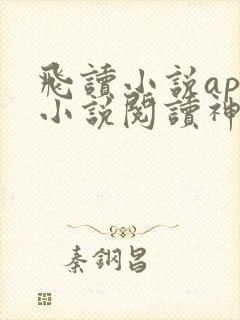 飛讀小説ap
小説閱讀神
秦鋼昌